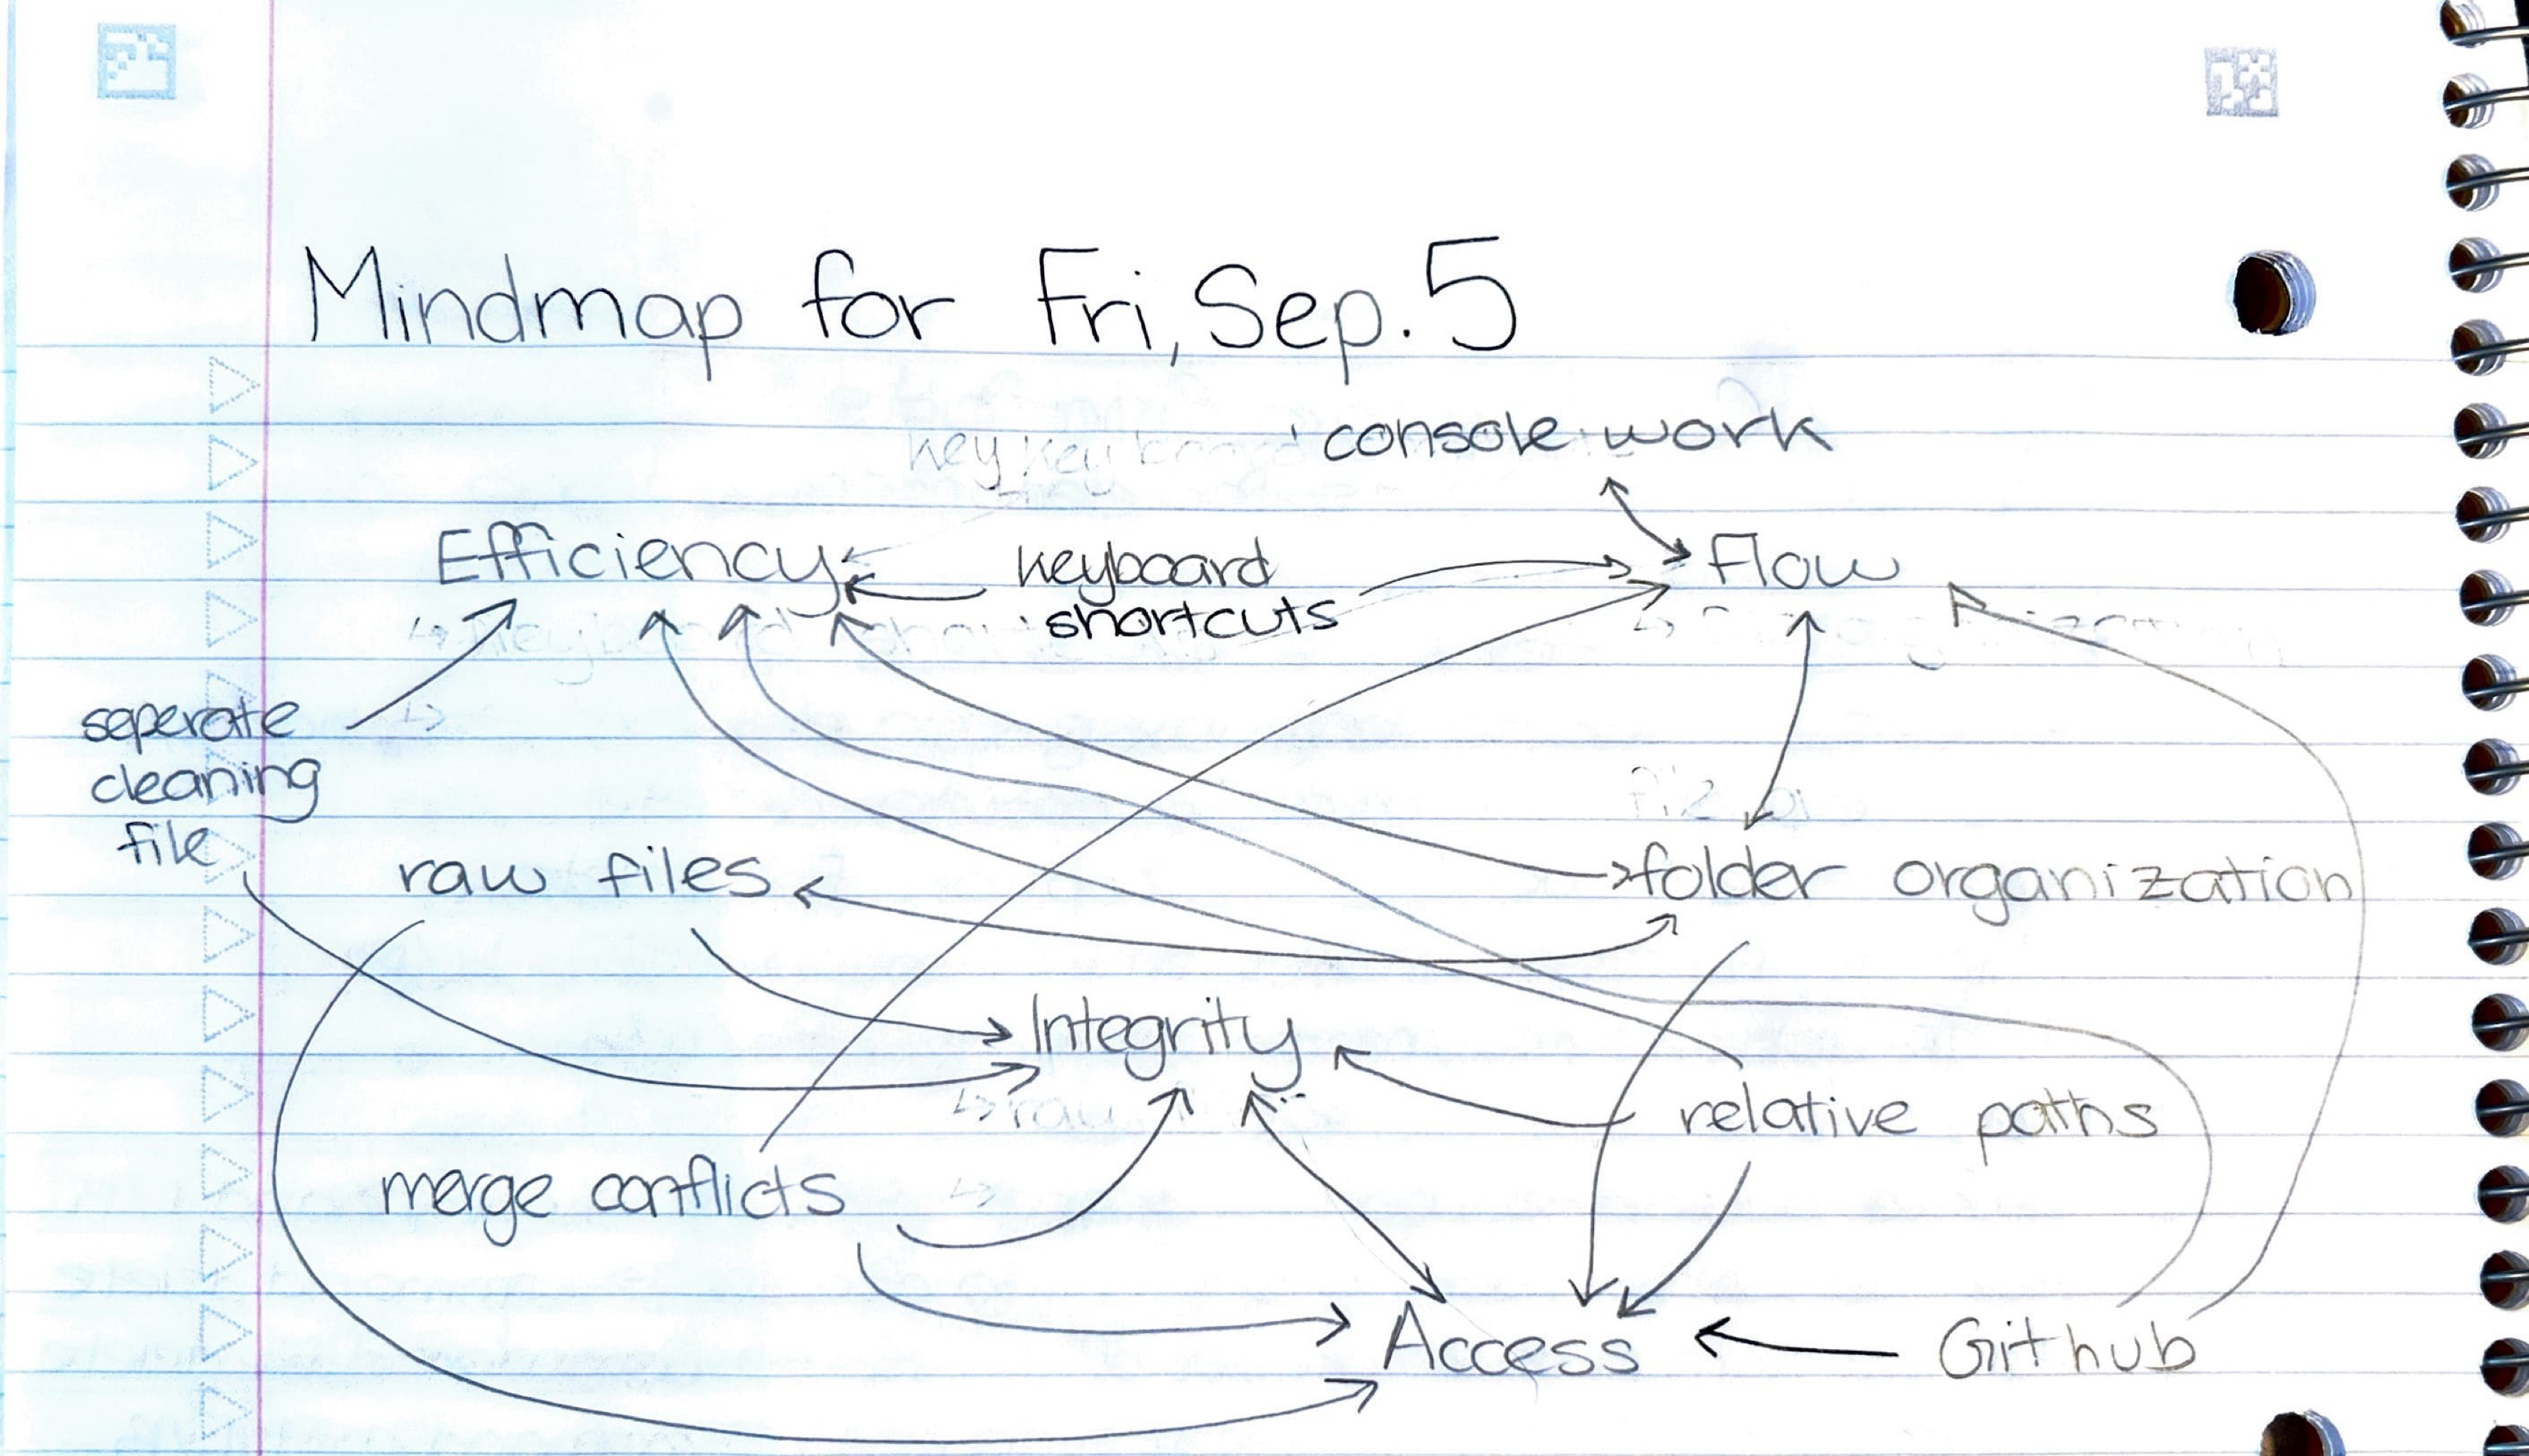 Mindmap for Fri, Sep. 5
console work
Efficiency
keyboard
shortcuts
Flow
seperate
cleaning
file
raw files
folder organization
Integrity
relative paths
merge conflicts
Access
Github